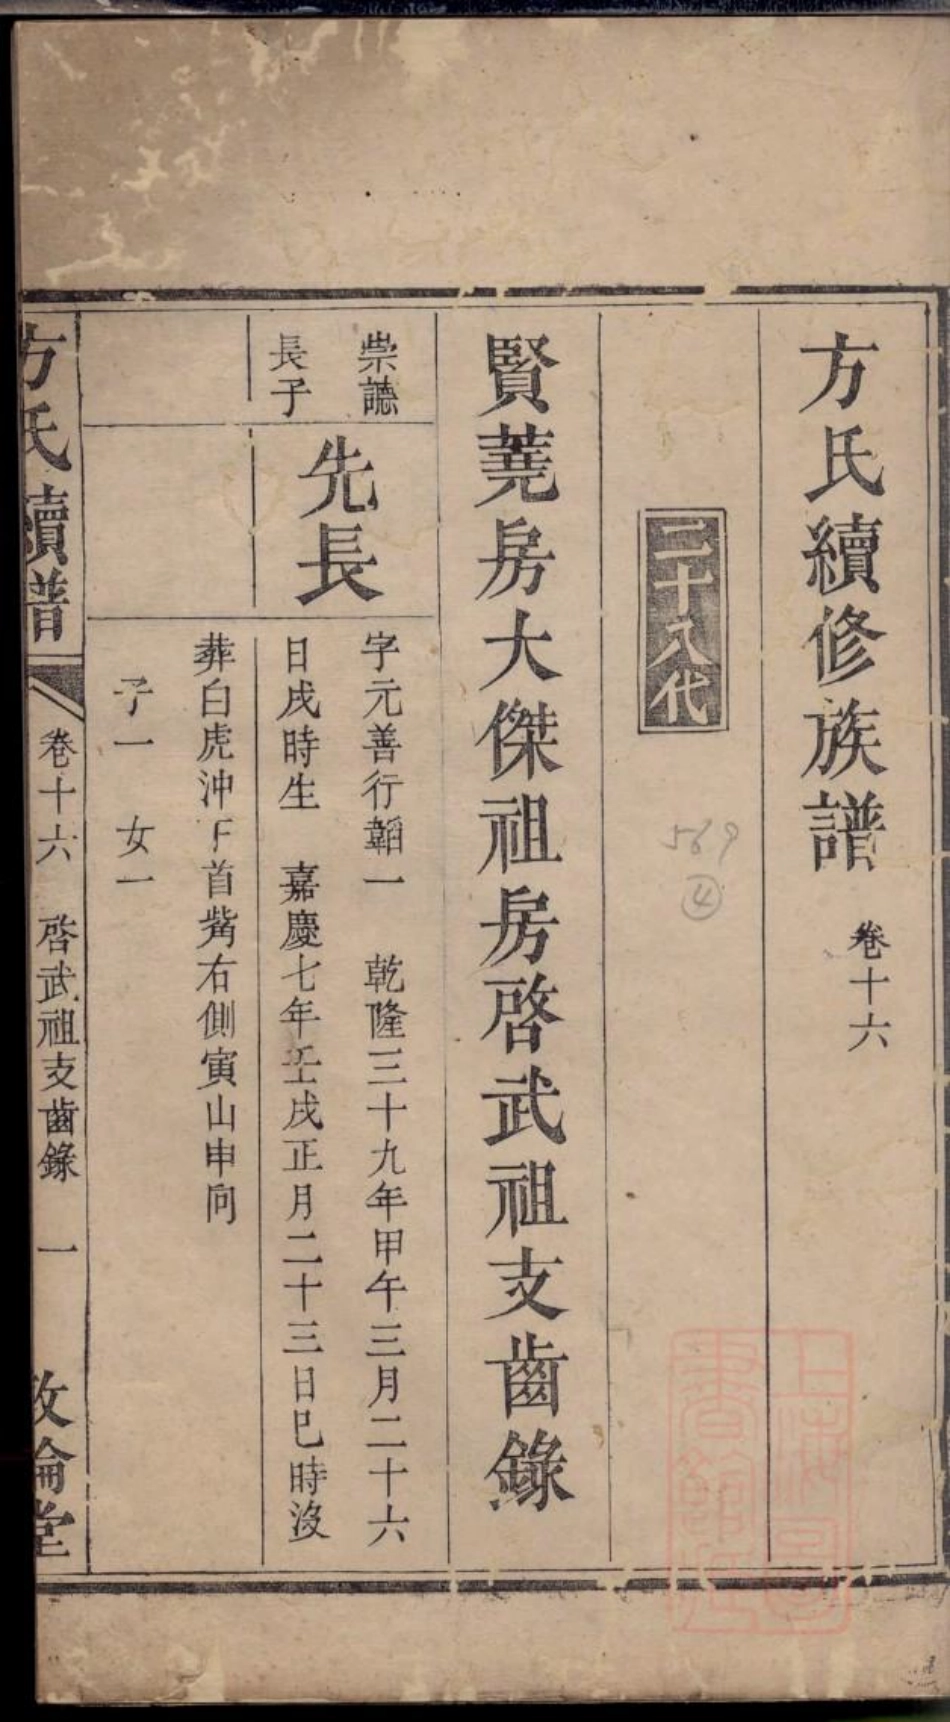 方氏續修族譜 卷十六
二十八代
569
④
賢蕘房大傑祖房啓武祖支齒錄
崇謙
長子
先長
字元善行韜一 乾隆三十九年甲午三月二十六
日戌時生 嘉慶七年壬戌正月二十三日巳時沒
葬白虎沖下首觜右側寅山申向
子一 女一
方氏續譜 卷十六 啓武祖支齒錄 一 敦倫堂
上海圖書館藏